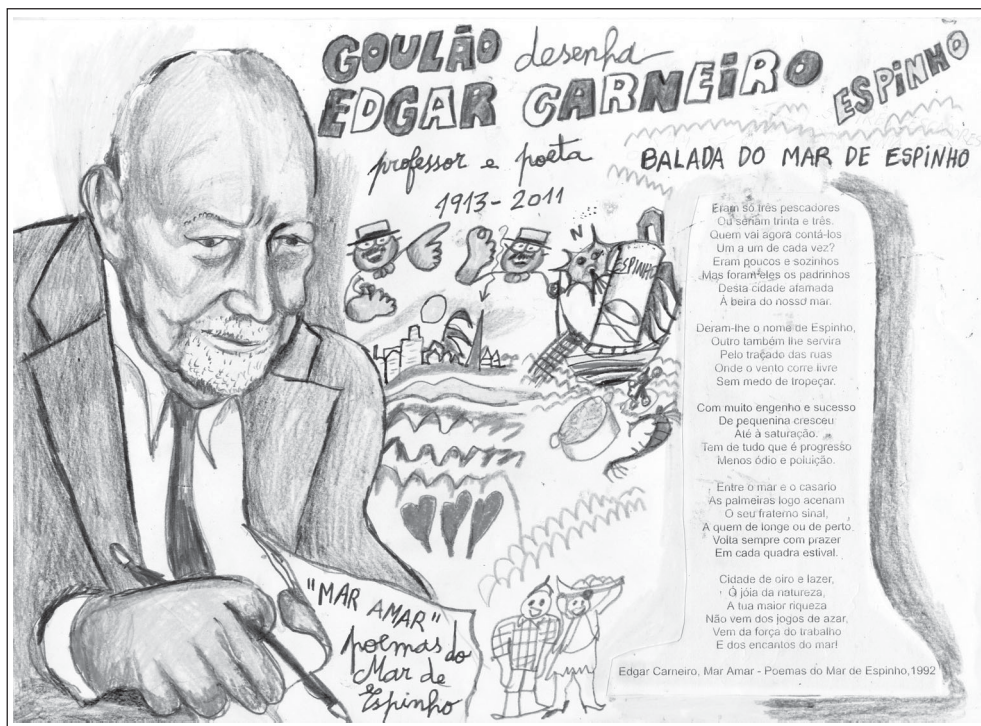 GOULÃO desenha
EDGAR CARNEIRO
ESPINHO
professor e poeta
1913-2011
BALADA DO MAR DE ESPINHO
ESPINHO
Eram só três pescadores
Ou seriam trinta e três.
Quem vai agora contá-los
Um a um de cada vez?
Eram poucos e sozinhos
Mas foram eles os padrinhos
Desta cidade afamada
À beira do nosso mar.
Deram-lhe o nome de Espinho,
Outro também lhe servira
Pelo traçado das ruas
Onde o vento corre livre
Sem medo de tropeçar.
Com muito engenho e sucesso
De pequenina cresceu
Até à saturação.
Tem de tudo que é progresso
Menos ódio e poluição.
Entre o mar e o casario
As palmeiras logo acenam
O seu fraterno sinal,
A quem de longe ou de perto
Volta sempre com prazer
Em cada quadra estival.
Cidade de oiro e lazer,
Ó jóia da natureza,
A tua maior riqueza
Não vem dos jogos de azar,
Vem da força do trabalho
E dos encantos do mar!
Edgar Carneiro, Mar Amar - Poemas do Mar de Espinho,1992
"MAR AMAR"
poemas do
Mar de
Espinho